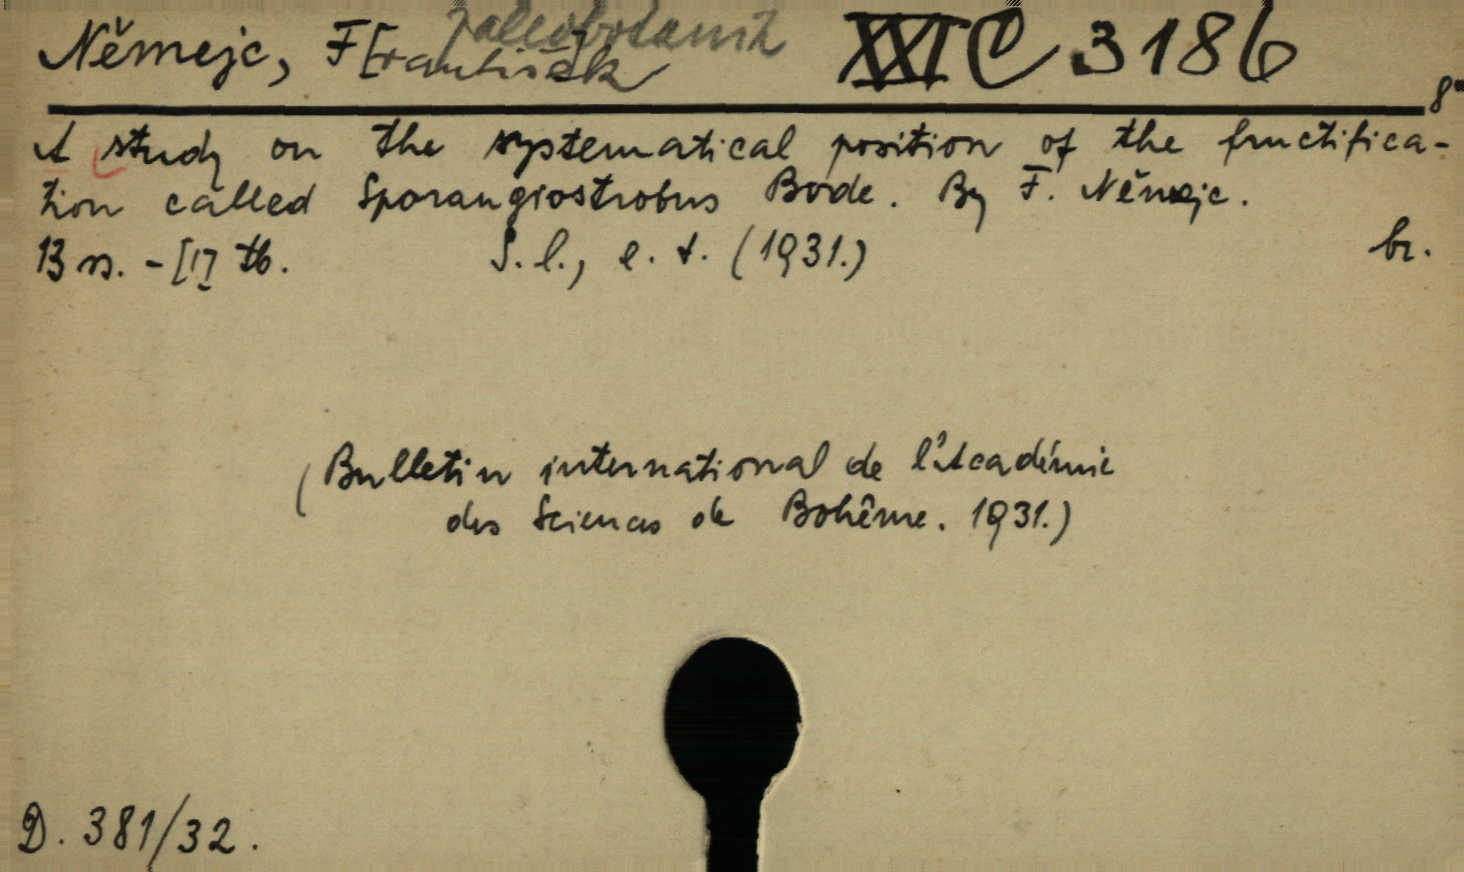 paleobotanik
Němejc, F[rantišek] XXI C 3186
8°
A study on the systematical position of the fructifica-
tion called Sporangiostrobus Bode. By F. Němejc.
13 s. - [1] tb. S. l., e. t. (1931.) br.
(Bulletin international de l'Académie
des Sciences de Bohême. 1931.)
D. 381/32.